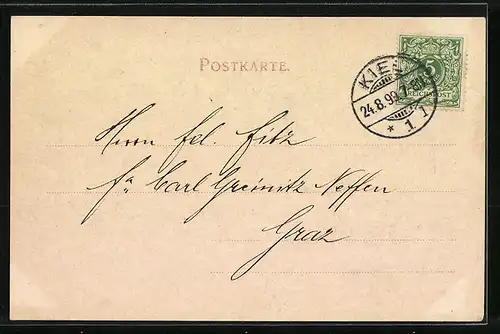 POSTKARTE.
KIEL
24.8.99.
* 1 1
5
REICHSPOST
Herrn Fel. Fitz
Fa Carl Greinitz Neffen
Graz